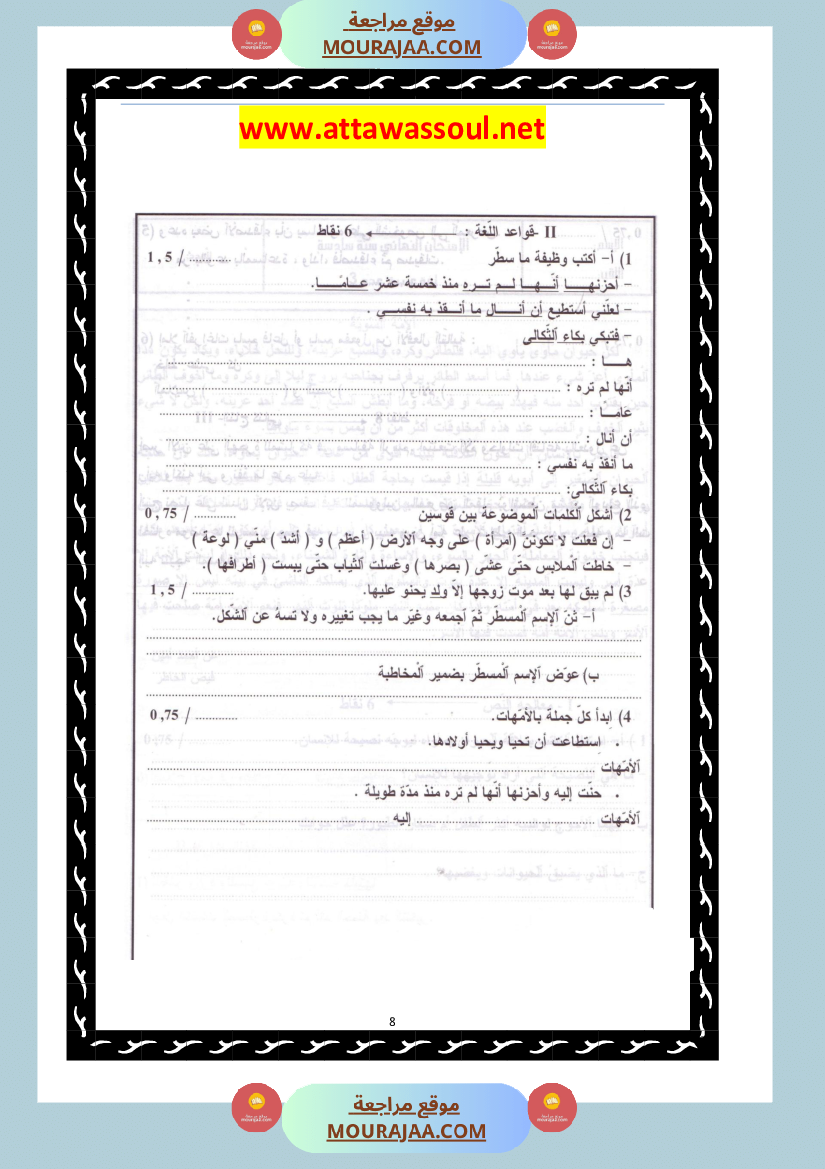 موقع مراجعة
MOURAJAA.COM
www.attawassoul.net
II -قواعد اللّغة : 6 نقاط
1) أ- أكتب وظيفة ما سطّر ............/ 1,5
- أحزنهـــا أنّــهــا لــم تــره منذ خمسة عشر عــامًــــا.
- لعلّني أستطيع أن أنـــال ما أنــقذ به نفســي .
- فتبكي بكاء ٱلثّكالى
هـــا : ..........
أنّها لم تره : ..........
عامــًا : ..........
أن أنال : ..........
ما أنقذ به نفسي : ..........
بكاء ٱلثّكالى: ..........
2) أشكل ٱلكلمات ٱلموضوعة بين قوسين ............/ 0,75
- إن فعلت لا تكوننّ (ٱمرأة ) على وجه ٱلأرض ( أعظم ) و ( أشدّ ) منّي ( لوعة )
- خاطت ٱلملابس حتى عشّى ( بصرها ) وغسلت ٱلثّياب حتّى يبست ( أطرافها ).
3) لم يبق لها بعد موت زوجها إلاّ ولد يحنو عليها. ............/ 1,5
أ- ثنّ ٱلإسم ٱلْمسطّر ثمّ ٱجمعه وغيّر ما يجب تغييره ولا تسهُ عن ٱلشّكل.
ب) عوّض ٱلإسم ٱلْمسطّر بضمير ٱلْمخاطبة
4) اِبدأ كلّ جملة بالأمّهات. ............/ 0,75
• اِستطاعت أن تحيا ويحيا أولادها.
ٱلأمّهات ..........
• حنّت إليه وأحزنها أنّها لم تره منذ مدّة طويلة .
ٱلأمّهات .......... إليه ..........
8
موقع مراجعة
MOURAJAA.COM